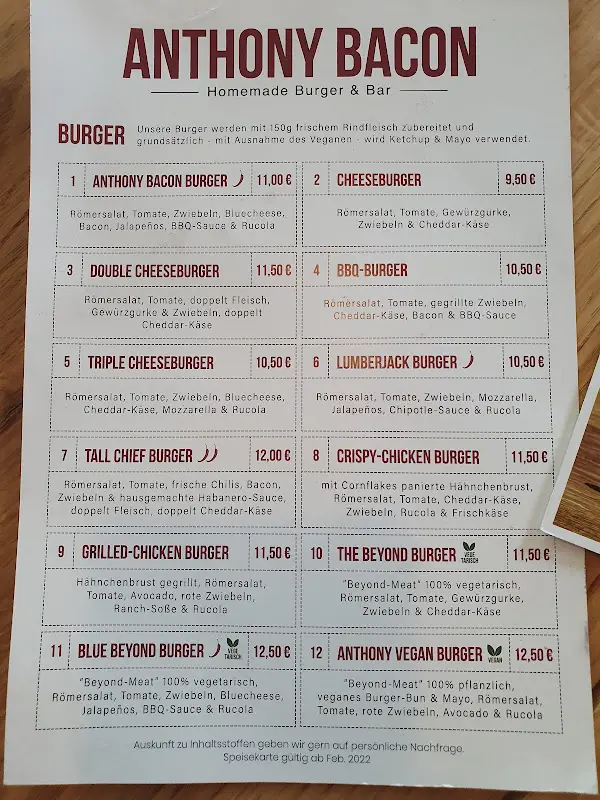 ANTHONY BACON
Homemade Burger & Bar
BURGER
Unsere Burger werden mit 150g frischem Rindfleisch zubereitet und
grundsätzlich - mit Ausnahme des Veganen - wird Ketchup & Mayo verwendet.
1 ANTHONY BACON BURGER 11,00 €
Römersalat, Tomate, Zwiebeln, Bluecheese,
Bacon, Jalapeños, BBQ-Sauce & Rucola
2 CHEESEBURGER 9,50 €
Römersalat, Tomate, Gewürzgurke,
Zwiebeln & Cheddar-Käse
3 DOUBLE CHEESEBURGER 11,50 €
Römersalat, Tomate, doppelt Fleisch,
Gewürzgurke & Zwiebeln, doppelt
Cheddar-Käse
4 BBQ-BURGER 10,50 €
Römersalat, Tomate, gegrillte Zwiebeln,
Cheddar-Käse, Bacon & BBQ-Sauce
5 TRIPLE CHEESEBURGER 10,50 €
Römersalat, Tomate, Zwiebeln, Bluecheese,
Cheddar-Käse, Mozzarella & Rucola
6 LUMBERJACK BURGER 10,50 €
Römersalat, Tomate, Zwiebeln, Mozzarella,
Jalapeños, Chipotle-Sauce & Rucola
7 TALL CHIEF BURGER 12,00 €
Römersalat, Tomate, frische Chilis, Bacon,
Zwiebeln & hausgemachte Habanero-Sauce,
doppelt Fleisch, doppelt Cheddar-Käse
8 CRISPY-CHICKEN BURGER 11,50 €
mit Cornflakes panierte Hähnchenbrust,
Römersalat, Tomate, Cheddar-Käse,
Zwiebeln, Rucola & Frischkäse
9 GRILLED-CHICKEN BURGER 11,50 €
Hähnchenbrust gegrillt, Römersalat,
Tomate, Avocado, rote Zwiebeln,
Ranch-Soße & Rucola
10 THE BEYOND BURGER VEGE TARISCH 11,50 €
"Beyond-Meat" 100% vegetarisch,
Römersalat, Tomate, Gewürzgurke,
Zwiebeln & Cheddar-Käse
11 BLUE BEYOND BURGER VEGE TARISCH 12,50 €
"Beyond-Meat" 100% vegetarisch,
Römersalat, Tomate, Zwiebeln, Bluecheese,
Jalapeños, BBQ-Sauce & Rucola
12 ANTHONY VEGAN BURGER VEGAN 12,50 €
"Beyond-Meat" 100% pflanzlich,
veganes Burger-Bun & Mayo, Römersalat,
Tomate, rote Zwiebeln, Avocado & Rucola
Auskunft zu Inhaltsstoffen geben wir gern auf persönliche Nachfrage.
Speisekarte gültig ab Feb. 2022